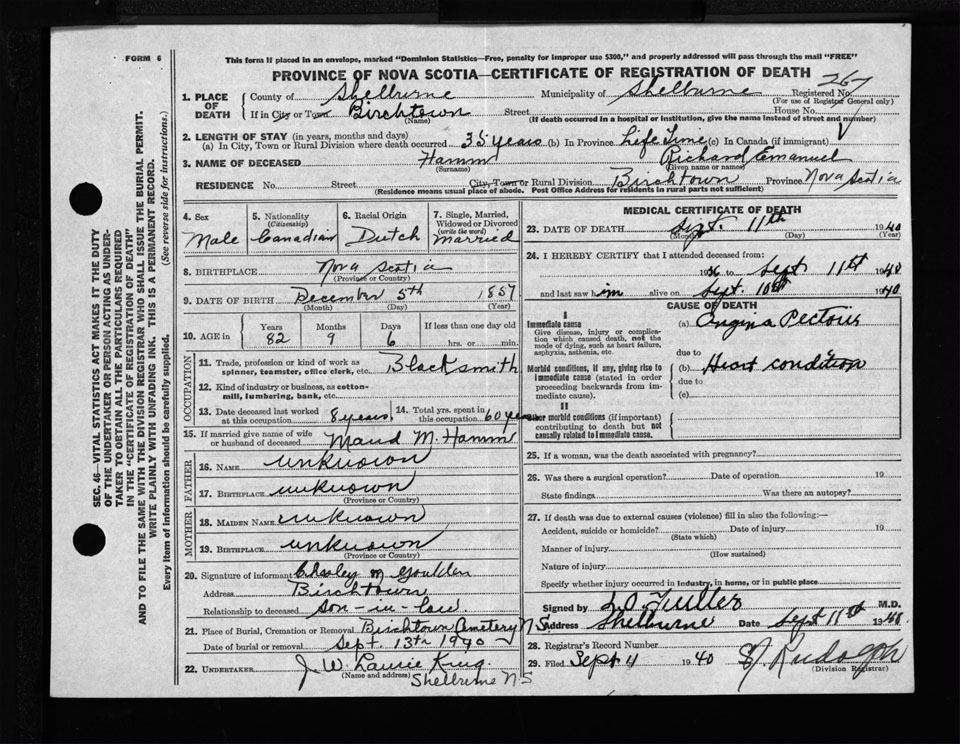 FORM 6
This form if placed in an envelope, marked "Dominion Statistics—Free, penalty for improper use $300," and properly addressed will pass through the mail "FREE"
PROVINCE OF NOVA SCOTIA—CERTIFICATE OF REGISTRATION OF DEATH
267
1. PLACE OF DEATH
County of Shelburne Municipality of Shelburne Registered No.
(For use of Registrar General only)
If in City or Town Birchtown Street House No.
(Name) (If death occurred in a hospital or institution, give the name instead of street and number)
2. LENGTH OF STAY (in years, months and days)
(a) In City, Town or Rural Division where death occurred 35 years (b) In Province Life Time (c) In Canada (if immigrant)
3. NAME OF DECEASED Hamm Richard Emanuel
(Surname) (Given name or names)
RESIDENCE No. Street City, Town or Rural Division Birchtown Province Nova Scotia
(Residence means usual place of abode. Post Office Address for Residents in rural parts not sufficient)
4. Sex
Male
5. Nationality (Citizenship)
Canadian
6. Racial Origin
Dutch
7. Single, Married, Widowed or Divorced (write the word)
married
8. BIRTHPLACE Nova Scotia
(Province or Country)
9. DATE OF BIRTH December 5th 1857
(Month) (Day) (Year)
10. AGE in Years Months Days If less than one day old
82 9 6 hrs. or min.
OCCUPATION
11. Trade, profession or kind of work as spinner, teamster, office clerk, etc. Blacksmith
12. Kind of industry or business, as cotton-mill, lumbering, bank, etc.
13. Date deceased last worked at this occupation 8 years
14. Total yrs. spent in this occupation 60 years
15. If married give name of wife or husband of deceased Maud M. Hamm
FATHER
16. NAME unknown
17. BIRTHPLACE unknown
(Province or Country)
MOTHER
18. MAIDEN NAME unknown
19. BIRTHPLACE unknown
(Province or Country)
20. Signature of informant M Goulden
Address Birchtown
Relationship to deceased son-in-law.
21. Place of Burial, Cremation or Removal Birchtown Cemetery N.S.
Date of burial or removal Sept. 13th 1940
22. UNDERTAKER J. W. Laurie King
(Name and address)
Shelburne N S
MEDICAL CERTIFICATE OF DEATH
23. DATE OF DEATH Sept. 11th 1940
(Month) (Day) (Year)
24. I HEREBY CERTIFY that I attended deceased from:
1936 to Sept 11th 1940
and last saw him alive on Sept. 10th 1940
CAUSE OF DEATH
I
Immediate cause
Give disease, injury or complication which caused death, not the mode of dying, such as heart failure, asphyxia, asthenia, etc.
(a) Angina Pectoris
due to
Morbid conditions, if any, giving rise to immediate cause (stated in order proceeding backwards from immediate cause).
(b) Heart condition
due to
(c)
II
Other morbid conditions (if important) contributing to death but not causally related to immediate cause.
25. If a woman, was the death associated with pregnancy?
26. Was there a surgical operation? Date of operation 19
State findings Was there an autopsy?
27. If death was due to external causes (violence) fill in also the following:—
Accident, suicide or homicide? Date of injury 19
(State which)
Manner of injury
(How sustained)
Nature of injury
Specify whether injury occurred in industry, in home, or in public place
Signed by L O Fuller M.D.
Address Shelburne Date Sept 11th 1940
28. Registrar's Record Number
29. Filed Sept 1940 Rudolph
(Division Registrar)
SEC. 46—VITAL STATISTICS ACT MAKES IT THE DUTY
OF THE UNDERTAKER OR PERSON ACTING AS UNDERTAKER TO OBTAIN ALL THE PARTICULARS REQUIRED
IN THE "CERTIFICATE OF REGISTRATION OF DEATH"
AND TO FILE THE SAME WITH THE DIVISION REGISTRAR WHO SHALL ISSUE THE BURIAL PERMIT.
WRITE PLAINLY WITH UNFADING INK. THIS IS A PERMANENT RECORD.
Every item of information should be carefully supplied. (See reverse side for instructions.)